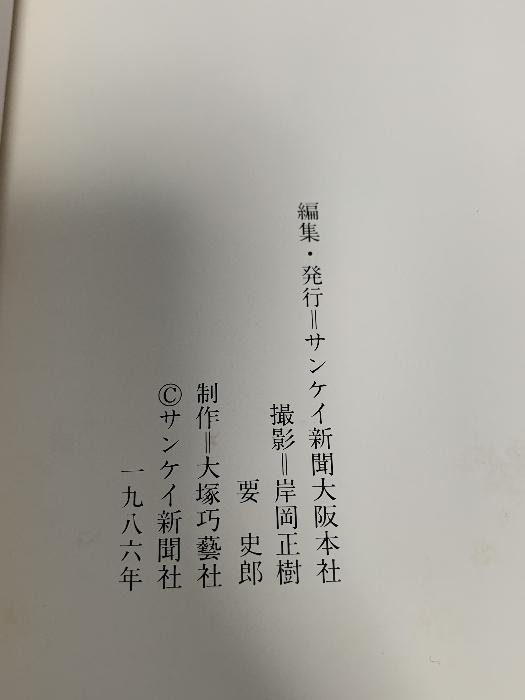 編集・発行=サンケイ新聞大阪本社
撮影=岸岡正樹
要 史郎
制作=大塚巧藝社
©サンケイ新聞社
一九八六年